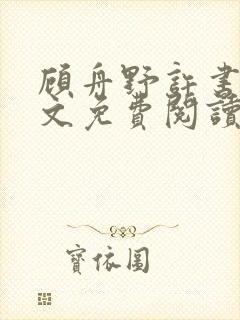 顧舟野許書
文免費閱讀
寶依圓